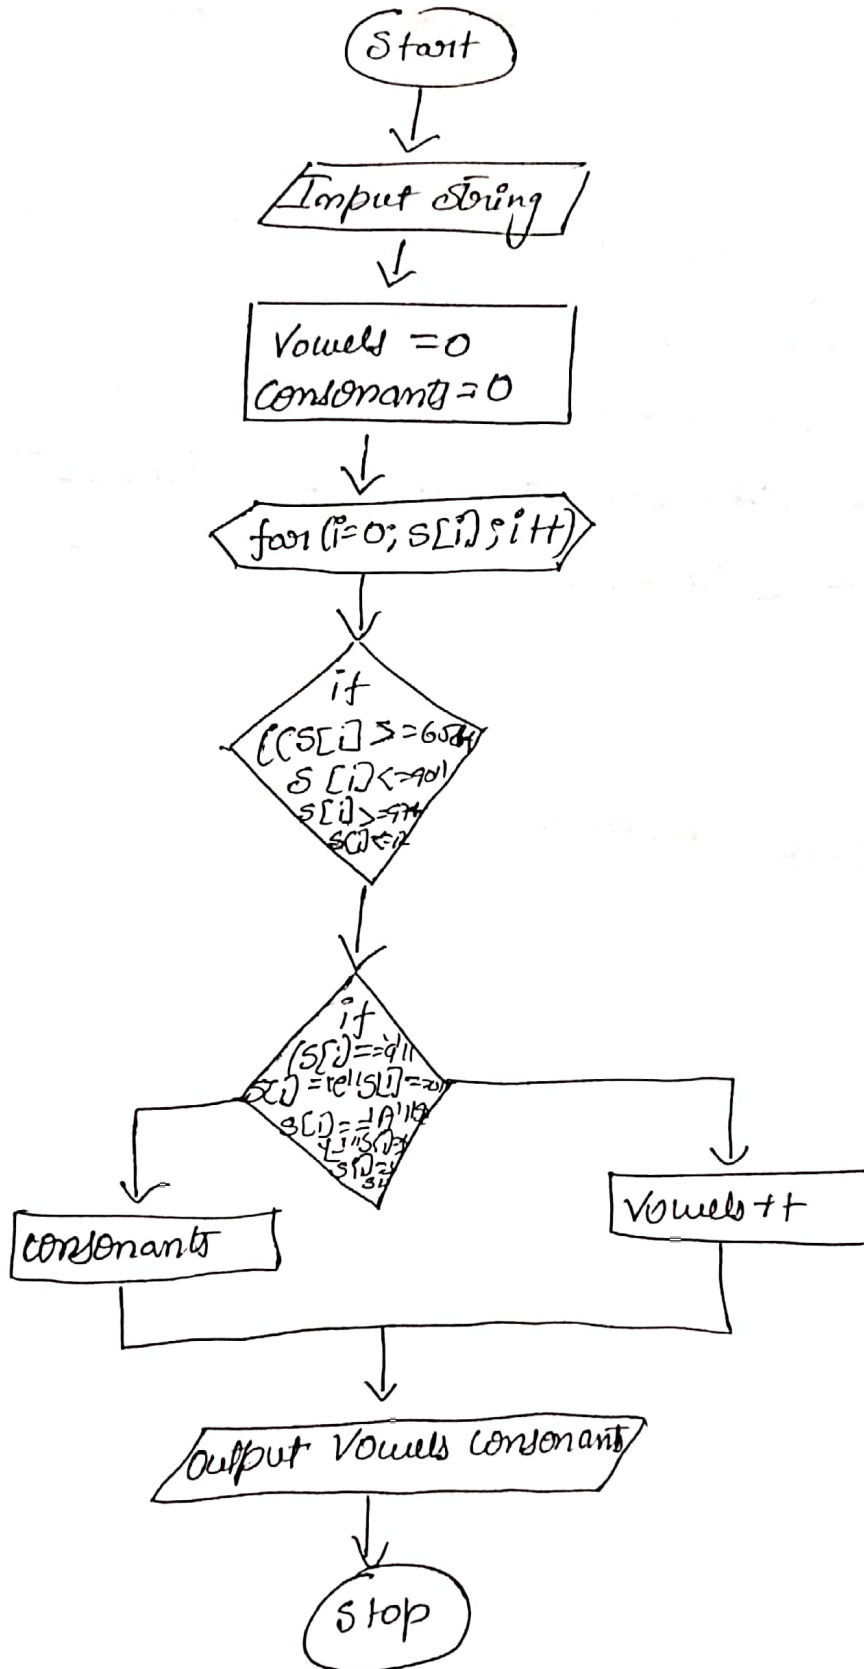 Start
Input String
Vowels = 0
Consonants = 0
for (i=0; s[i]; i++)
if
((S[i] >=65
S[i] <=90
S[i] >=97
S[i] <=
if
(S[i] ==
S[i] = S[i] =
S[i] == 'A'
S[i] =
consonants
Vowels ++
output Vowels consonants
Stop